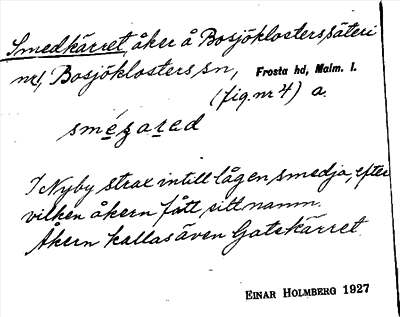 Smedkärret, åker å Bosjöklosters säteri
nr 1, Bosjöklosters sn, Frosta hd, Malm. l.
(fig. nr 4) a.
I Nyby strax intill lågen smedja, efter
vilken åkern fått sitt namn.
Åkern kallas även Gatekärret.
EINAR HOLMBERG 1927